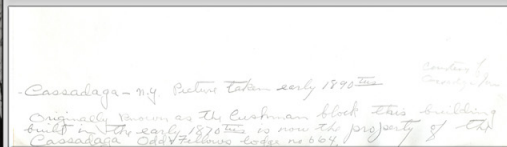 -Cassadaga - n.y. Picture taken early 1890ties
Originally known as the Cushman block this building
built in the early 1870ties is now the property of the
Cassadaga Odd Fellows lodge no 664.
courtesy of